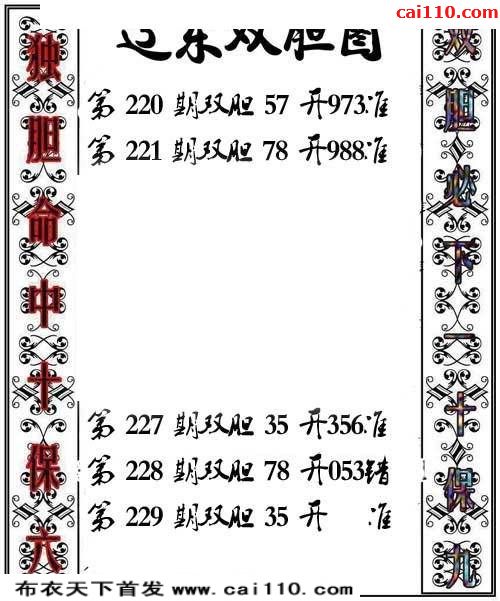 cai110.com
辽东双胆图
第 220 期双胆 57 开973准
第 221 期双胆 78 开988准
第 227 期双胆 35 开356准
第 228 期双胆 78 开053错
第 229 期双胆 35 开 准
独胆命中十保六
双胆必下一十保九
布衣天下首发 www.cai110.com